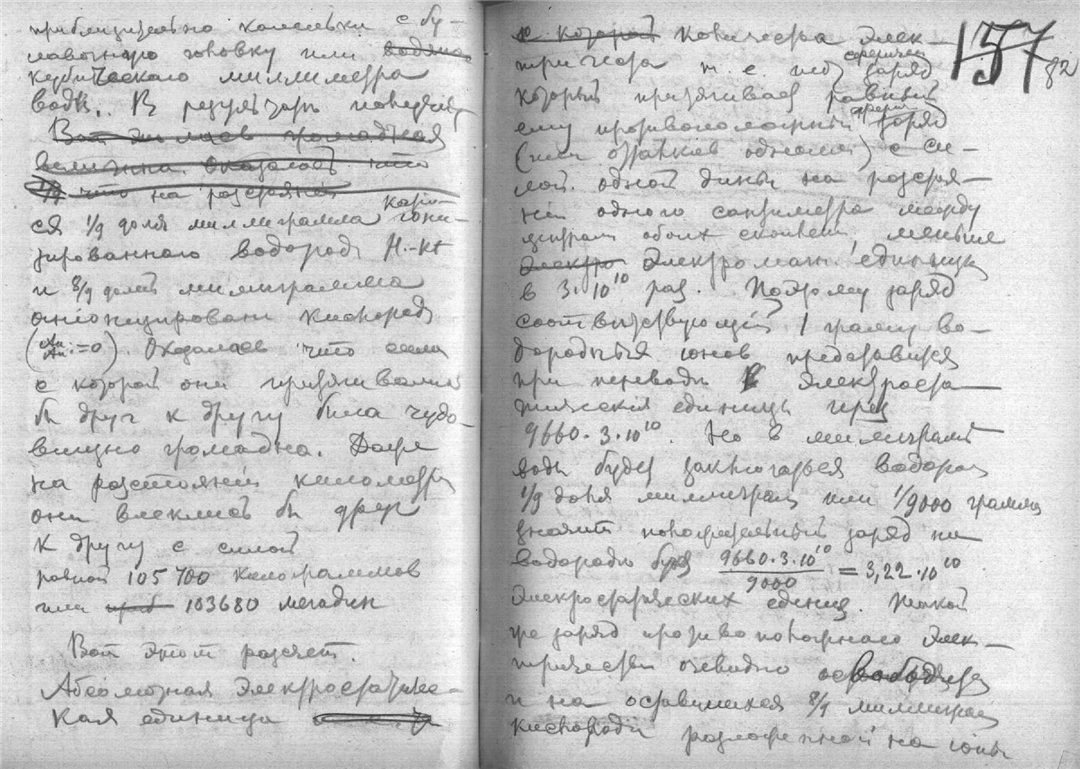 приблизительно капельки с бу-
лавочную головку или водяна
кубического миллиметра
воды. В результате
Вот
величина. Оказалось что
1/9 что на разстояніи
ся 1/9 доля миллиграмма катіо-
гони-
зированнаго водорода H.-Kt
и 8/9 долей миллиграмма
аніонизированн кислорода
( =0). Оказалось что сила
с которой они притягивались
бы друг к другу была чудо-
вищно громадна. Даже
на разстояніи километра
они влеклись бы друг
к другу с силой
равной 105700 килограммов
или 103680 мегадин
Вот этот разсчет.
Абсолютная электростатичес-
кая единица
157
82
к которой количества элек-
тричества т. е. заряд
который притягивает равный
ему противоположный заряд
(или отталкив одноимен) с си-
лой одной дины на разстоя-
ніи одного сантиметра между
центрами обоих, меньше
электро электромагн. единицы
в 3·10^10 раз. Поэтому заряд
соответствующій 1 грамму во-
дородных іонов представится
при переводе в электроста-
тическія единицы чрез
9660·3·10^10. Но в миллиграмме
воды будет заключаться водорода
1/9 доля миллиграмма или 1/9000 грамма
значит положительный заряд на
водороде будет 9660·3·10^10 / 9000 = 3,22·10^10
электростатических единиц. Такой
же заряд противоположнаго элек-
тричества очевидно освободится
и на оставшихся 8/9 миллиграмма
кислорода разложенной на іоны